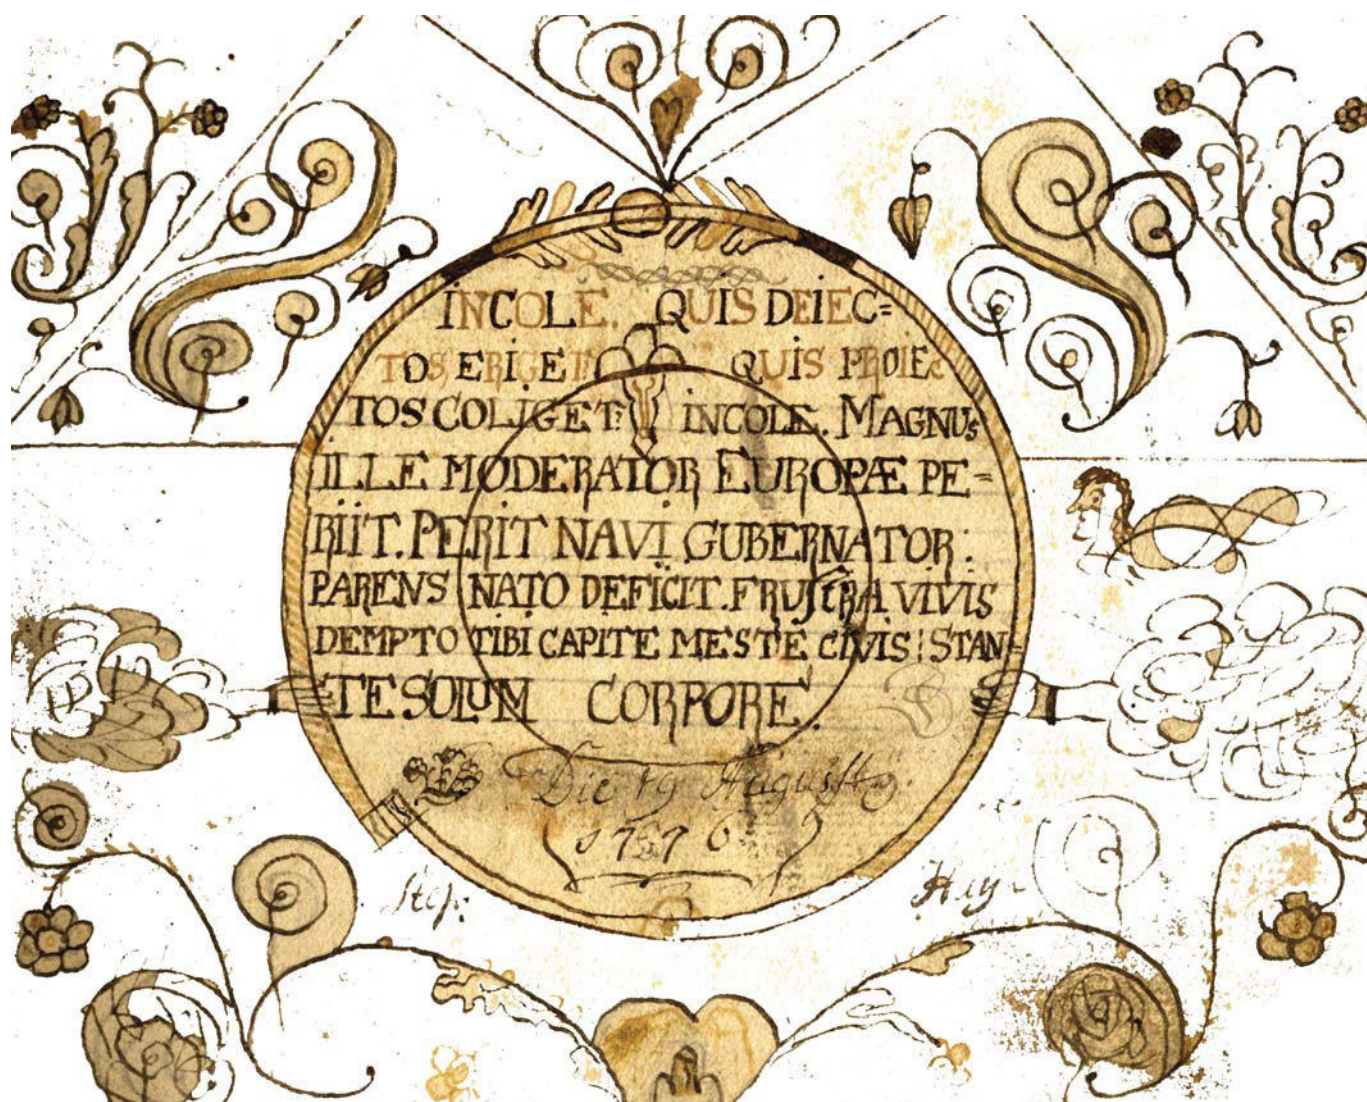 INCOLE. QUIS DEIEC=
TOS ERIGET QUIS PROIEC
TOS COLIGET: INCOLE. MAGNUS
ILLE MODERATOR EUROPÆ PE=
RIIT. PERIT NAVI GUBERNATOR:
PARENS NATO DEFICIT. FRUSTRA VIVIS
DEMPTO TIBI CAPITE MESTE CIVIS: STAN=
TE SOLUM CORPORE.
Die 19 Augusty
1776
Step: Hay-